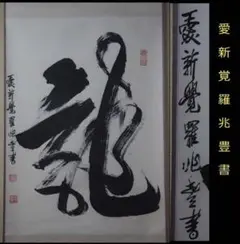 龍
愛新覺羅兆豊書
愛新覺羅兆豊書
愛新覚羅兆豊書